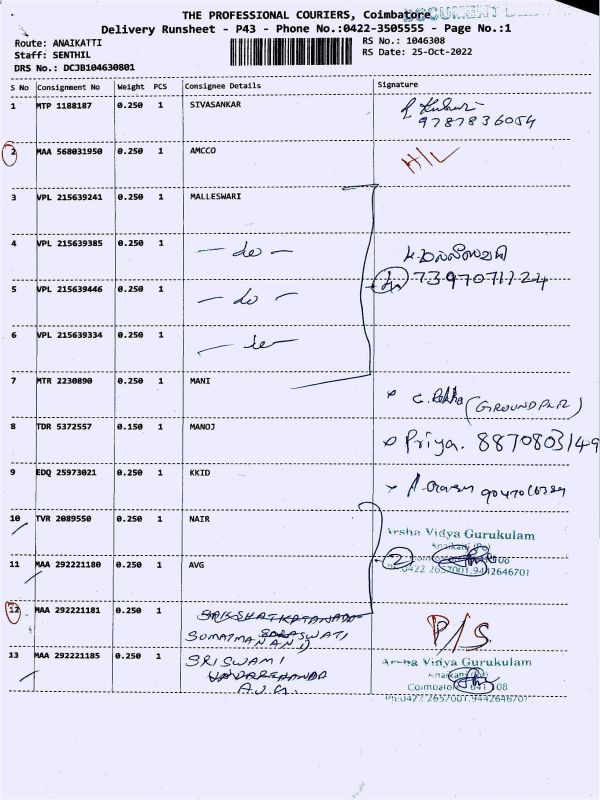 THE PROFESSIONAL COURIERS, Coimbatore
Delivery Runsheet - P43 - Phone No.:0422-3505555 - Page No.:1
Route: ANAIKATTI
RS No.: 1046308
Staff: SENTHIL
RS Date: 25-Oct-2022
DRS No.: DCJB104630801
S No Consignment No Weight PCS Consignee Details Signature
1 MTP 1188187 0.250 1 SIVASANKAR
9787836054
2 MAA 568031950 0.250 1 AMCCO H/L
3 VPL 215639241 0.250 1 MALLESWARI
4 VPL 215639385 0.250 1 - do -
5 VPL 215639446 0.250 1 - do - 7397071124
6 VPL 215639334 0.250 1 - do -
7 MTR 2230890 0.250 1 MANI
8 TDR 5372557 0.150 1 MANOJ Priya. 8870803149
9 EDQ 25973021 0.250 1 KKID
10 TVR 2089550 0.250 1 NAIR
Arsha Vidya Gurukulam
Anaikatti (Po)
11 MAA 292221180 0.250 1 AVG 2
Ph:0422 2657001,9442646701
12 MAA 292221181 0.250 1
P/S.
13 MAA 292221185 0.250 1 SRI SWAMI
Arsha Vidya Gurukulam
Anaikatti (Po)
A.V.G.
Coimbatore 641 108
Ph:0422 2657001,9442646701